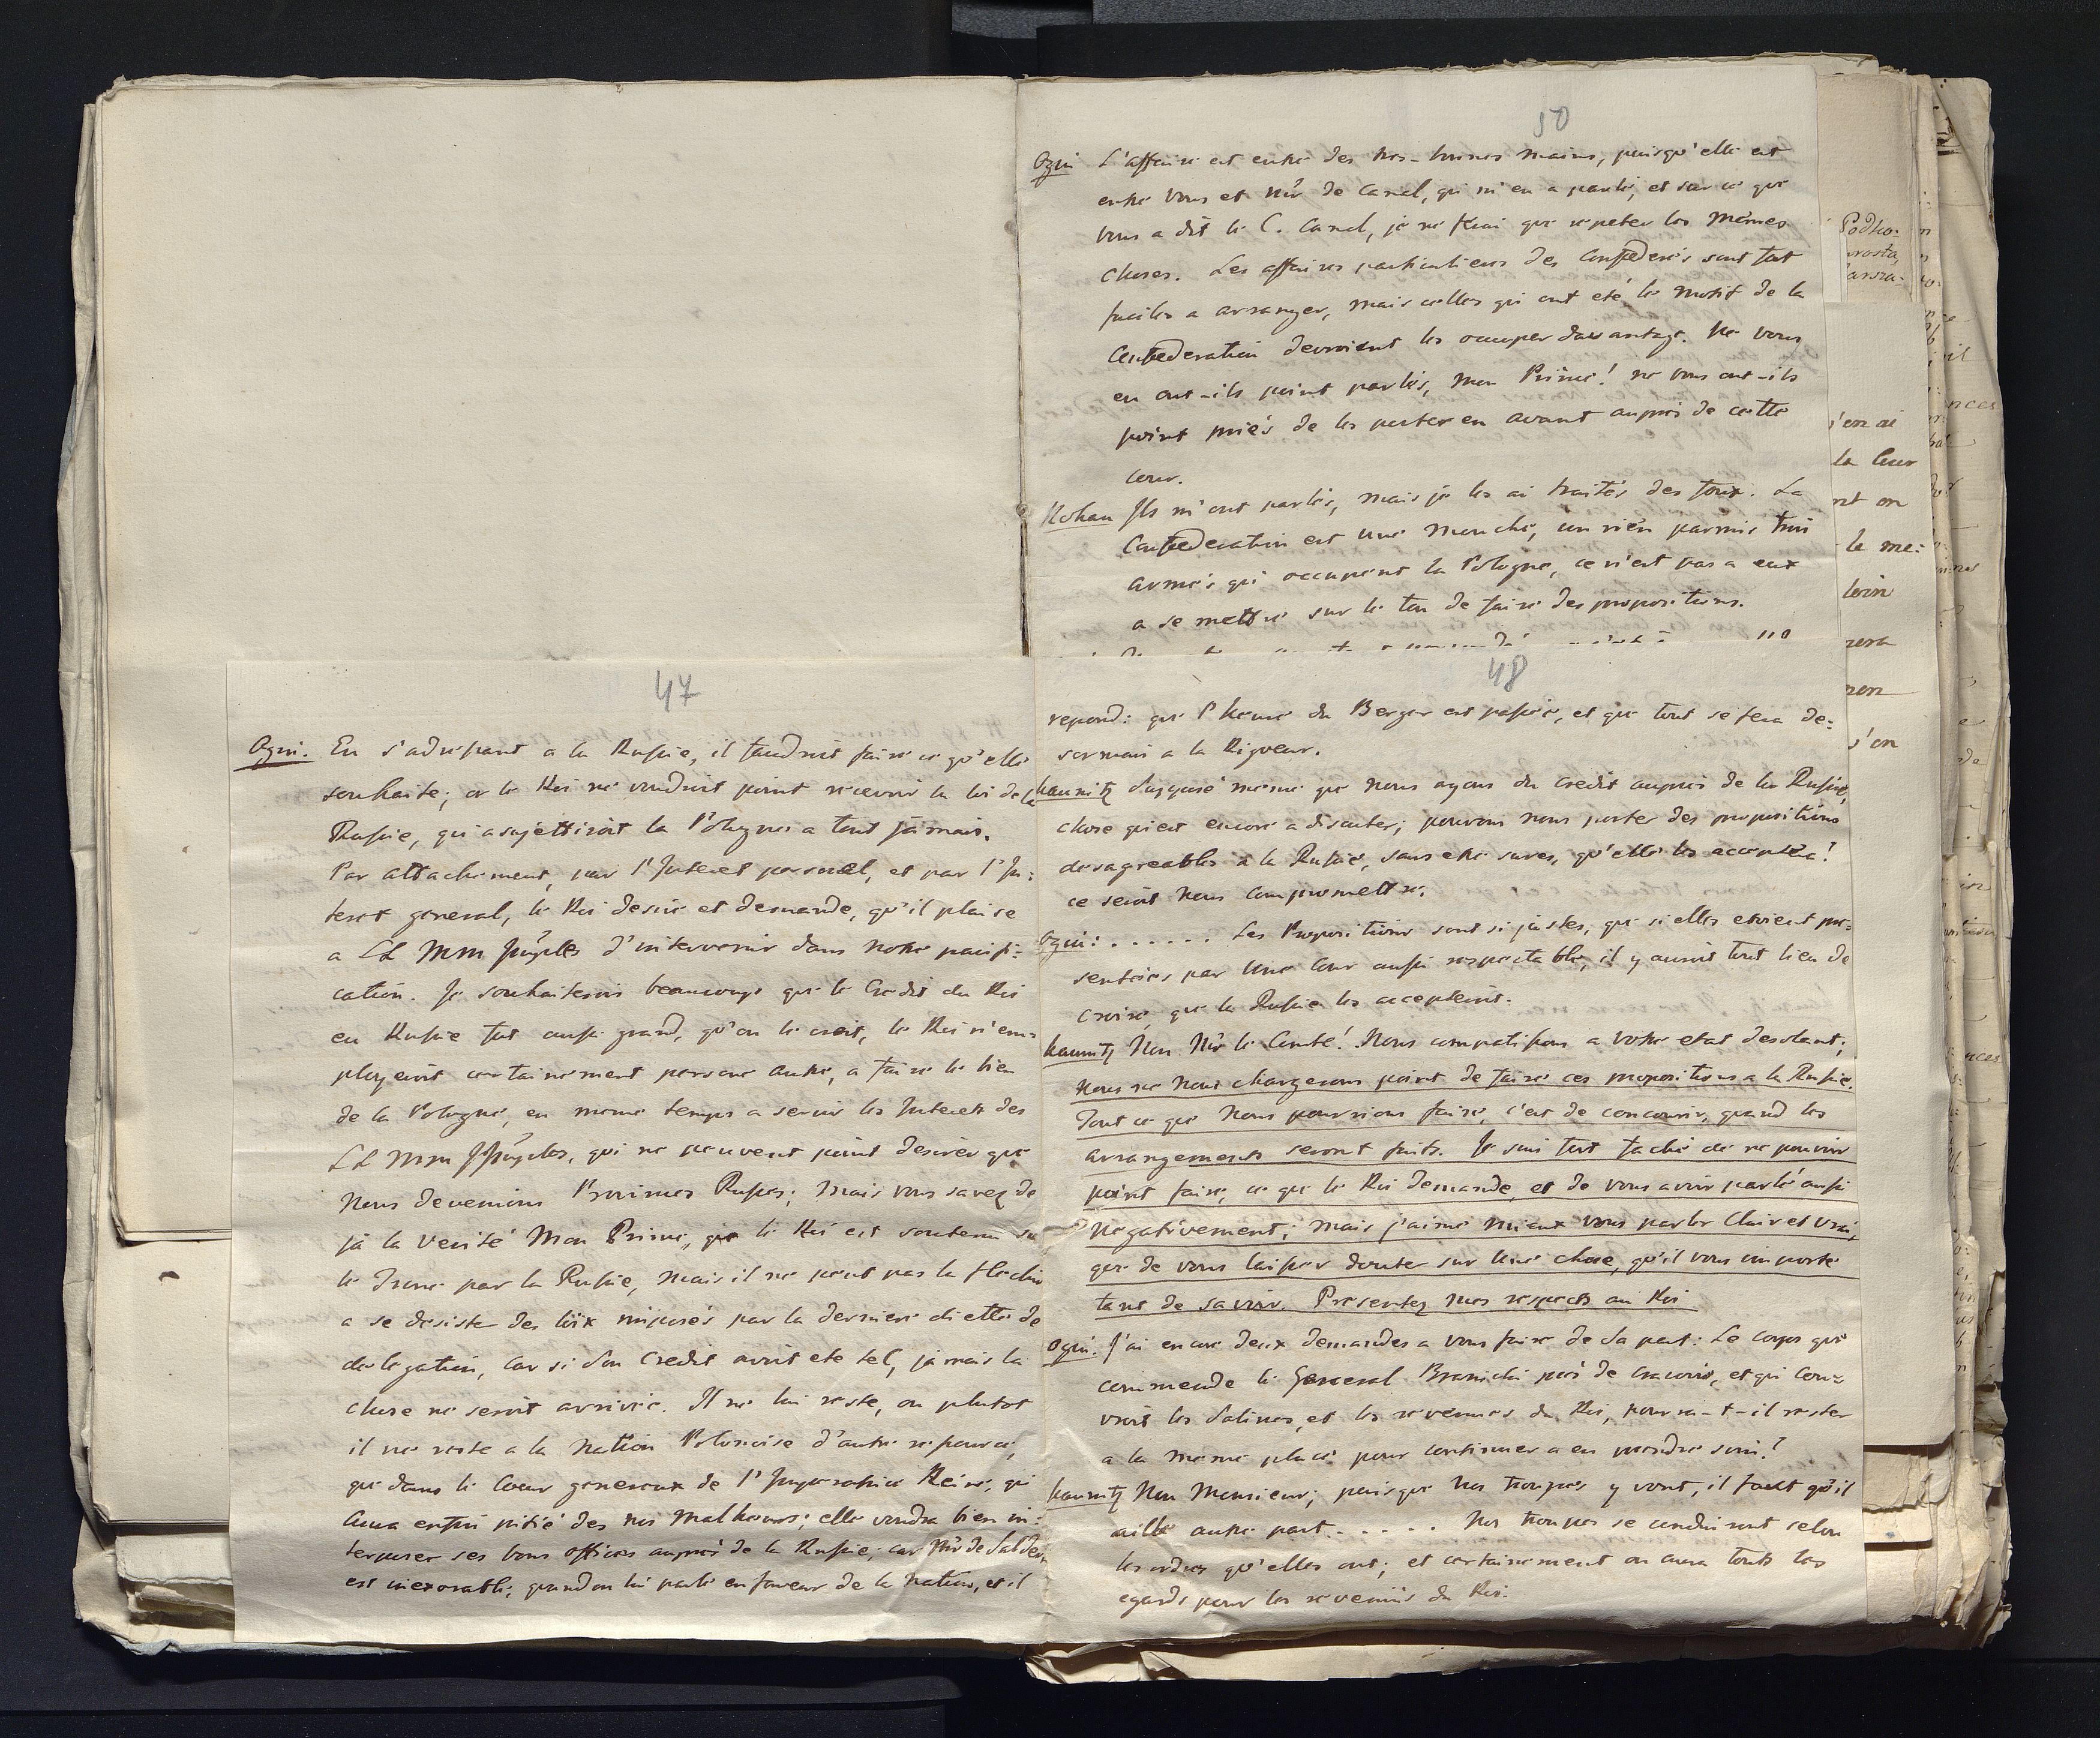 50
Ogin L'affaire est entre des tres-bonnes mains, puisqu'elle est
entre vous et Mr de Canel, qui m'en a parlé, et sur ce que
vous a dit le C. Canel, je ne ferai que repeter les mêmes
choses. Les affaires particulieres des Confederés sont fort
faciles a arranger, mais celles qui ont eté le motif de la
Confederation devroient les occuper davantage. Ne vous
en ont-ils point parlés, mon Prince! ne vous ont-ils
point priés de les porter en avant auprès de cette
cour.
Rohan Ils m'ont parlés, mais je les ai traités des foux. La
Confederation est une mouche, un rien parmis trois
armés qui occupent la Pologne, ce n'est pas a eux
a se mettre sur le ton de faire des propositions.
Podho-
rosta,
j'en ai
la leur
nt on
le me:
loin
zera
non
s'en
47
Ogin. En s'adressant a la Russie, il faudroit faire ce qu'elle
souhaite; or le Roi ne voudroit point recevoir la loi de la
Russie, qui asujettiroit la Pologne a tout jamais.
Par attachement, par l'Interet personel, et par l'In:
teret general, le Roi desire et demande, qu'il plaise
a LL MM Imples d'intervenir dans notre pacifi:
cation. Je souhaiterois beaucoup que le Credit du Roi
en Russie fut aussi grand, qu'on le croit, le Roi n'em:
ployeroit certainement persone autre, a faire le bien
de la Pologne, en meme temps a servir les Interets des
LL MM Imples, qui ne peuvent point desirer que
Nous devenions Provinces Russes; mais vous savez de
jà la verité Mon Prince, que le Roi est soutenu sur
le Trone par la Russie, mais il ne peut pas la flechir
a se desister des loix imposés par la derniere diette de
delegation, car si son Credit avoit eté tel, jamais la
chose ne seroit arrivée. Il ne lui reste, ou plutot
il ne reste a la Nation Polonoise d'autre ressource,
que dans le Coeur genereux de l'Imperatrice Reine, qui
aura enfin pitié des nos malheurs; elle voudra bien in:
terposer ses bons offices auprès de la Russie; car Mr de Saldern
est inexorable, quand on lui parle en faveur de la Nation, et il
48
repond: que l'heure du Berger est passée, et que tout se fera de:
sormais a la Rigueur.
Kaunitz Supposé meme que nous ayons du credit auprès de la Russie,
chose qui est encore a discuter; pouvons nous porter des propositions
desagreables à la Russie, sans etre sures, qu'elle les acceptera?
ce seroit nous compromettre.
Ogin: . . . . . . Les Propositions sont si justes, que si elles etoient pre:
sentées par Une Cour aussi respectable, il y auroit tout lieu de
croire, que la Russie les accepteroit.
Kaunitz Non Mr le Comte! Nous compatissons a votre etat desolant;
Nous ne nous chargerons point de faire ces propositions a la Russie.
Tout ce que Nous pourrions faire, c'est de concourir, quand les
arrangements seront faits. Je suis fort faché de ne pouvoir
point faire, ce que le Roi demande, et de vous avoir parlé aussi
negativement; mais j'aime mieux vous parler Clair et vrai,
que de vous laisser douter sur Une chose, qu'il vous importe
tant de savoir. Presentez mes respects au Roi
Ogin. J'ai encore deux demandes a vous faire de Sa part: Le corps que
commende le General Branicki près de Cracovie, et qui cou=
vroit les Salines, et les revenues du Roi, pourra-t-il rester
a la meme place pour continuer a en prendre soin?
Kaunitz Non Monsieur; puisque nos troupes y vont, il faut qu'il
aille autre part . . . . . . Nos troupes se conduiront selon
les ordres qu'elles ont; et certainement on aura touts les
egards pour les revenus du Roi.